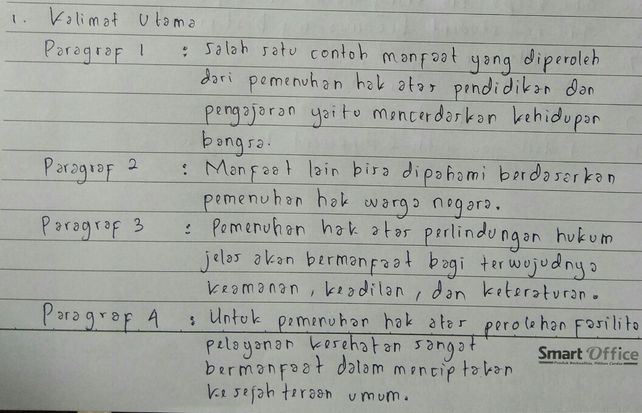 1. Kalimat Utama
Paragraf 1 : Salah satu contoh manfaat yang diperoleh
dari pemenuhan hak atas pendidikan dan
pengajaran yaitu mencerdaskan kehidupan
bangsa.
Paragraf 2 : Manfaat lain bisa dipahami berdasarkan
pemenuhan hak warga negara.
Paragraf 3 : Pemenuhan hak atas perlindungan hukum
jelas akan bermanfaat bagi terwujudnya
keamanan, keadilan, dan keteraturan.
Paragraf 4 : Untuk pemenuhan hak atas perolehan fasilita
pelayanan kesehatan sangat
Smart Office
bermanfaat dalam menciptakan
kesejahteraan umum.